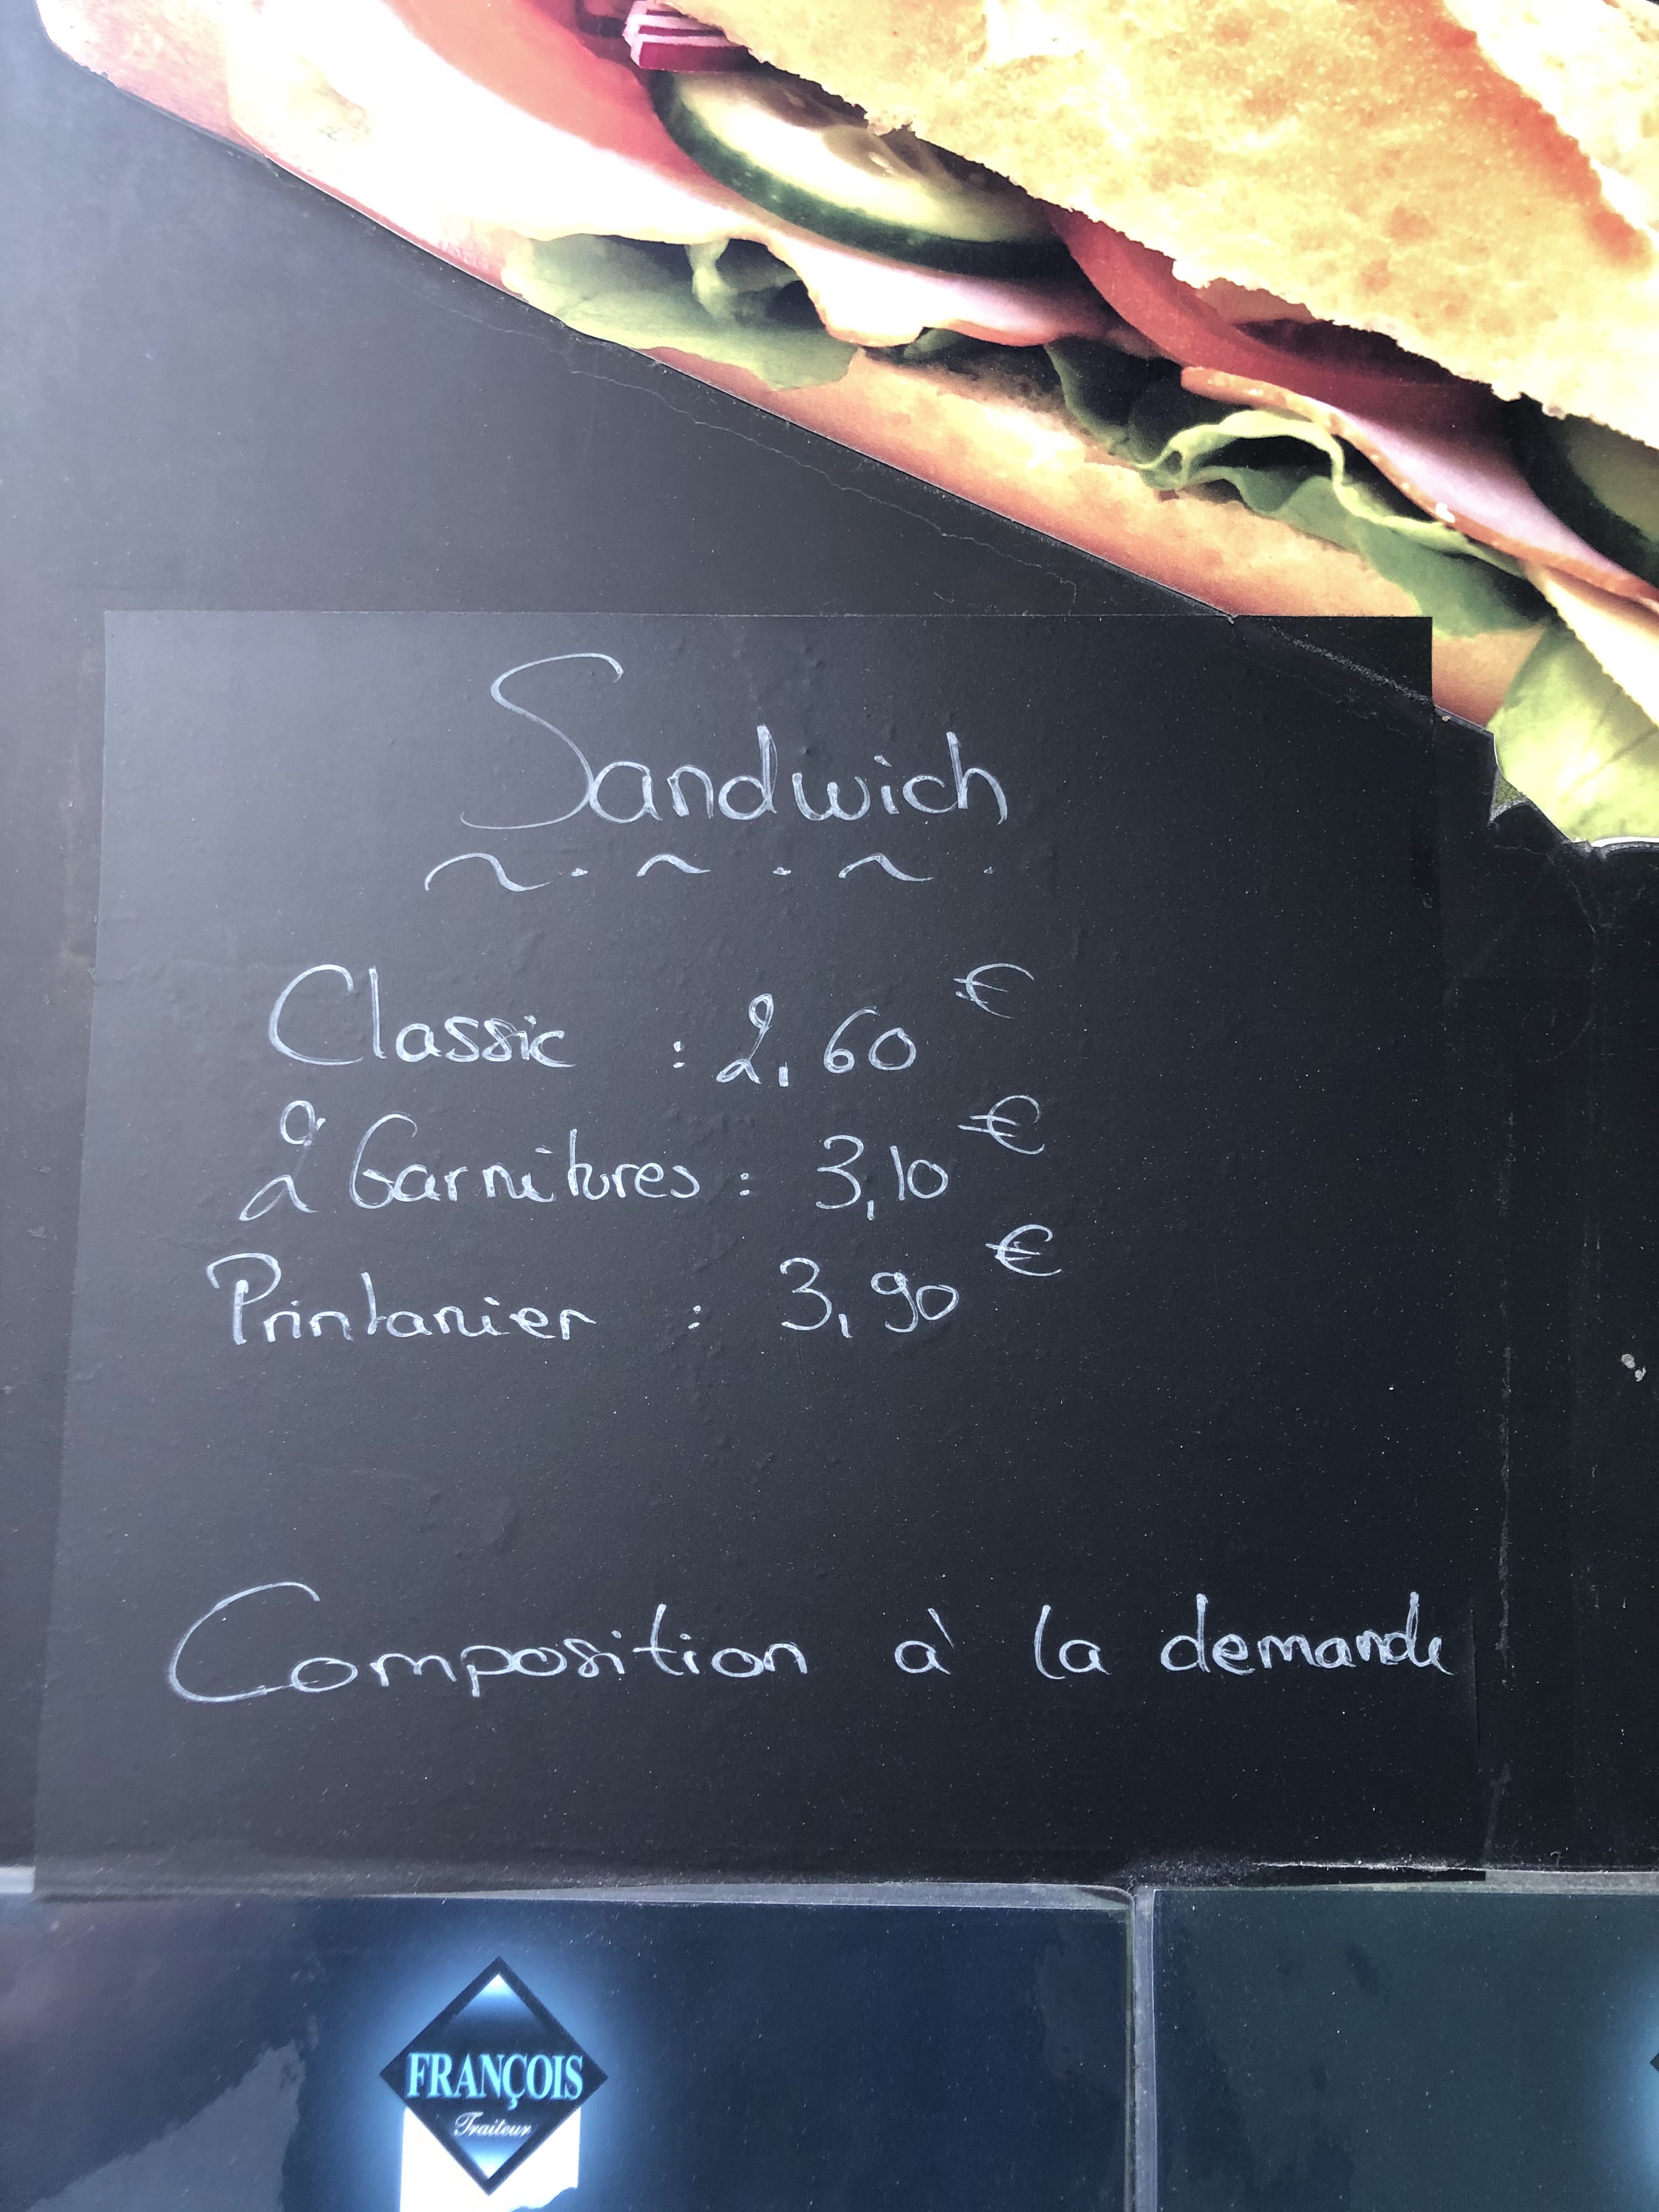 Sandwich
Classic : 2,60 €
2 Garnitures : 3,10 €
Printanier : 3,90 €
Composition à la demande
FRANÇOIS
Traiteur